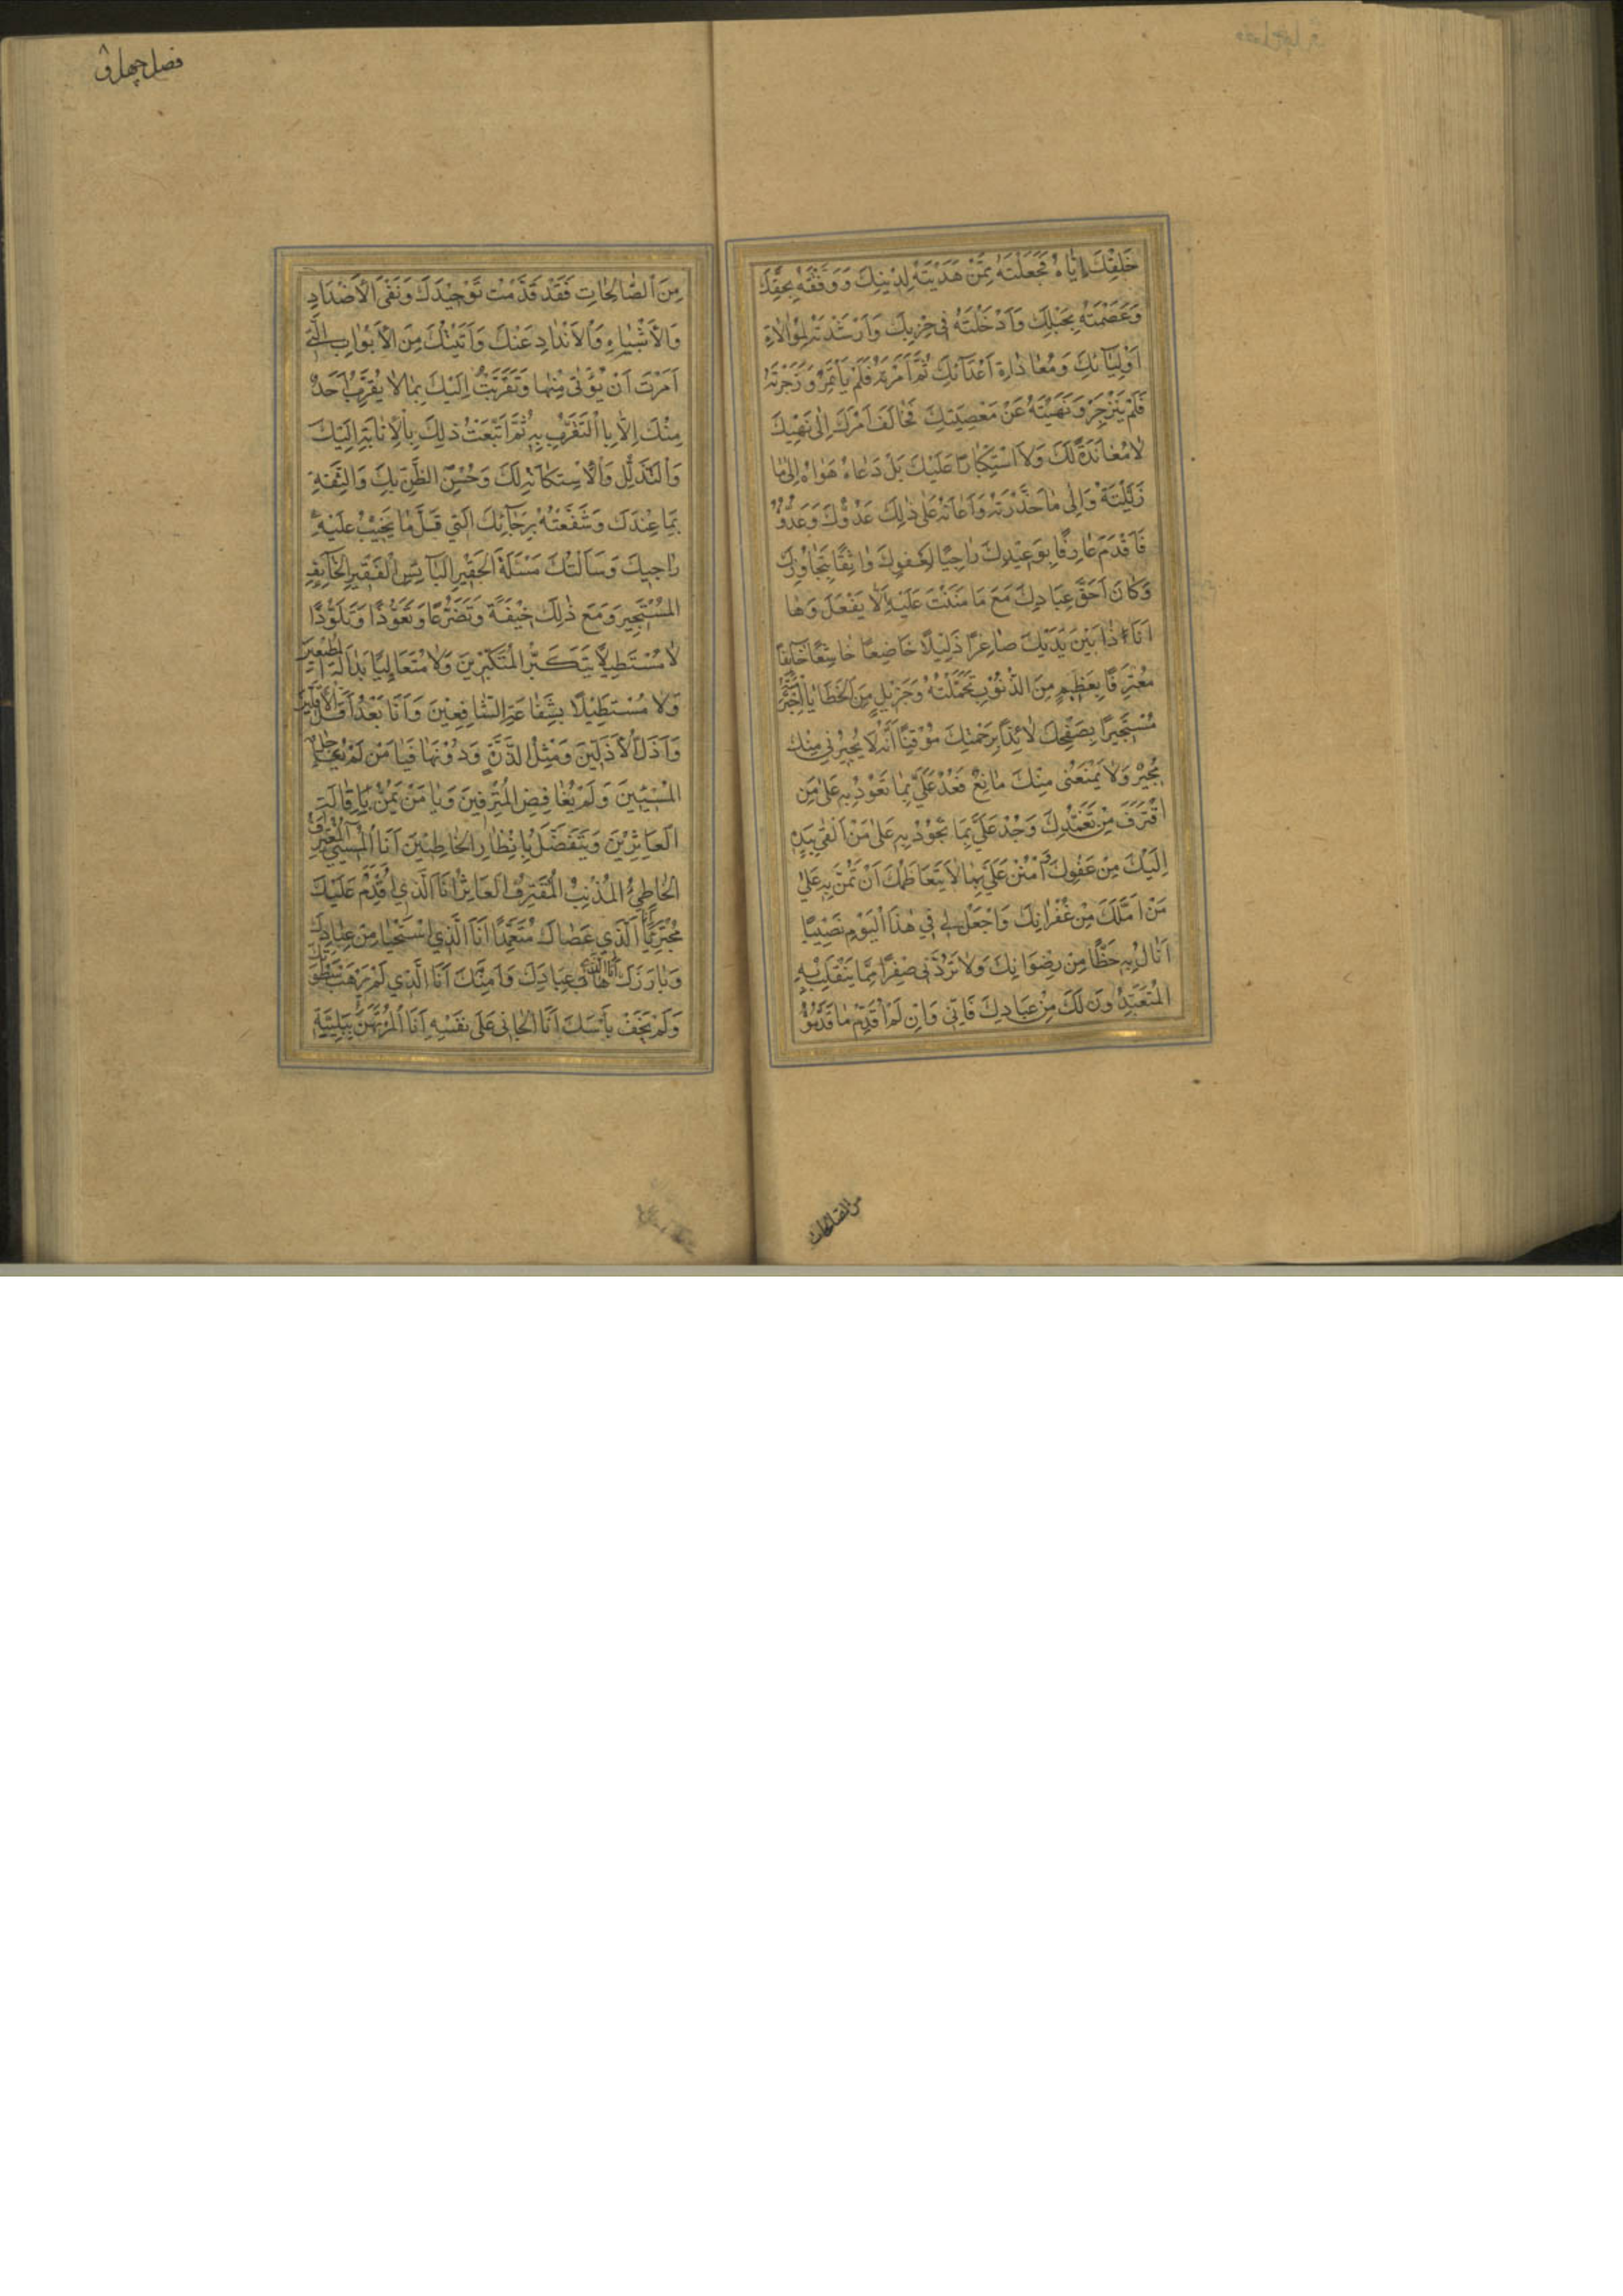 خَلْقِكَ اِيَّاهُ فَجَعَلْتَهُ مِمَّنْ هَدَيْتَهُ لِدِيْنِكَ وَ وَفَّقْتَهُ بِحَقِّكَ
وَعَصَمْتَهُ بِحَبْلِكَ وَاَدْخَلْتَهُ فِي حِزْبِكَ وَاَرْشَدْتَهُ لِمُوَالاةِ
اَوْلِيَآئِكَ وَمُعَادَاةِ اَعْدَآئِكَ ثُمَّ اَمَرْتَهُ فَلَمْ يَأْتَمِرْ وَ زَجَرْتَهُ
فَلَمْ يَنْزَجِرْ وَنَهَيْتَهُ عَنْ مَعْصِيَتِكَ فَخَالَفَ اَمْرَكَ اِلَى نَهْيِكَ
لَا مُعَانَدَةً لَكَ وَلَا اسْتِكْبَارًا عَلَيْكَ بَلْ دَعَاهُ هَوَاهُ اِلَى مَا
زَيَّلْتَهُ وَاِلَى مَا حَذَّرْتَهُ وَاَعَانَهُ عَلَى ذَلِكَ عَدُوُّكَ وَعَدُوُّهُ
فَاَقْدَمَ عَارِفًا بِوَعِيْدِكَ رَاجِيًا لِعَفْوِكَ وَاثِقًا بِتَجَاوُزِكَ
وَكَانَ اَحَقَّ عِبَادِكَ مَعَ مَا مَنَنْتَ عَلَيْهِ اَلَّا يَفْعَلَ وَهَا
اَنَا ذَا بَيْنَ يَدَيْكَ صَاغِرًا ذَلِيْلًا خَاضِعًا خَاشِعًا خَآئِفًا
مُعْتَرِفًا بِعَظِيْمٍ مِنَ الذُّنُوْبِ تَحَمَّلْتُهُ وَجَزِيْلٍ مِنَ الْخَطَايَا اجْتَرَمْتُهُ
مُسْتَجِيْرًا بِصَفْحِكَ لَائِذًا بِرَحْمَتِكَ مُوْقِنًا اَنَّهُ لَا يُجِيْرُنِي مِنْكَ
مُجِيْرٌ وَلَا يَمْنَعُنِي مِنْكَ مَانِعٌ فَعُدْ عَلَيَّ بِمَا تَعُوْدُ بِهِ عَلَى مَنِ
اقْتَرَفَ مِنْ تَغَمُّدِكَ وَجُدْ عَلَيَّ بِمَا تَجُوْدُ بِهِ عَلَى مَنْ اَلْقَى بِيَدِهِ
اِلَيْكَ مِنْ عَفْوِكَ وَامْنُنْ عَلَيَّ بِمَا لَا يَتَعَاظَمُكَ اَنْ تَمُنَّ بِهِ عَلَى
مَنْ اَمَّلَكَ مِنْ غُفْرَانِكَ وَاجْعَلْ لِي فِي هَذَا الْيَوْمِ نَصِيْبًا
اَنَالُ بِهِ حَظًّا مِنْ رِضْوَانِكَ وَلَا تَرُدَّنِي صِفْرًا مِمَّا يَنْقَلِبُ بِهِ
الْمُتَعَبِّدُوْنَ لَكَ مِنْ عِبَادِكَ فَاِنِّي وَاِنْ لَمْ اُقَدِّمْ مَا قَدَّمُوْهُ
من الصالحات
فصل چهل و
مِنَ الصَّالِحَاتِ فَقَدْ قَدَّمْتُ تَوْحِيْدَكَ وَنَفْيَ الْاَضْدَادِ
وَالْاَشْبَاهِ وَالْاَنْدَادِ عَنْكَ وَاَتَيْتُكَ مِنَ الْاَبْوَابِ الَّتِي
اَمَرْتَ اَنْ يُؤْتَى مِنْهَا وَتَقَرَّبْتُ اِلَيْكَ بِمَا لَا يَقْرُبُ اَحَدٌ
مِنْكَ اِلَّا بِالتَّقَرُّبِ بِهِ ثُمَّ اَتْبَعْتُ ذَلِكَ بِالْاِنَابَةِ اِلَيْكَ
وَالتَّذَلُّلِ وَالْاِسْتِكَانَةِ لَكَ وَحُسْنِ الظَّنِّ بِكَ وَالثِّقَةِ
بِمَا عِنْدَكَ وَشَفَعْتُهُ بِرَجَآئِكَ الَّتِي قَلَّ مَا يَخِيْبُ عَلَيْهِ
رَاجِيْكَ وَسَاَلْتُكَ مَسْئَلَةَ الْحَقِيْرِ الْبَآئِسِ الْفَقِيْرِ الْخَآئِفِ
الْمُسْتَجِيْرِ وَمَعَ ذَلِكَ خِيْفَةً وَتَضَرُّعًا وَتَعَوُّذًا وَتَلَوُّذًا
لَا مُسْتَطِيْلًا بِتَكَبُّرِ الْمُتَكَبِّرِيْنَ وَلَا مُتَعَالِيًا بِدَالَّةِ الْمُطِيْعِيْنَ
وَلَا مُسْتَطِيْلًا بِشَفَاعَةِ الشَّافِعِيْنَ وَاَنَا بَعْدُ اَقَلُّ الْاَقَلِّيْنَ
وَاَذَلُّ الْاَذَلِّيْنَ وَمِثْلُ الذَّرَّةِ وَدُوْنَهَا فَيَا مَنْ لَمْ يُعَاجِلِ
الْمُسِيْئِيْنَ وَلَمْ يُغَافِصِ الْمُتْرَفِيْنَ وَيَا مَنْ يَمُنُّ بِاِقَالَةِ
الْعَاثِرِيْنَ وَيَتَفَضَّلُ بِاِنْظَارِ الْخَاطِئِيْنَ اَنَا الْمُسِيْئُ الْمُعْتَرِفُ
الْخَاطِئُ الْمُذْنِبُ الْمُقْتَرِفُ الْعَاثِرُ اَنَا الَّذِي اَقْدَمَ عَلَيْكَ
مُجْتَرِئًا اَنَا الَّذِي عَصَاكَ مُتَعَمِّدًا اَنَا الَّذِي اسْتَحْيَا مِنْ عِبَادِكَ
وَبَارَزَكَ اَنَا الَّذِي هَابَ عِبَادَكَ وَاَمِنَكَ اَنَا الَّذِي لَمْ يَرْهَبْ سَطْوَتَكَ
وَلَمْ يَخَفْ بَأْسَكَ اَنَا الْجَانِي عَلَى نَفْسِهِ اَنَا الْمُرْتَهَنُ بِبَلِيَّتِهِ